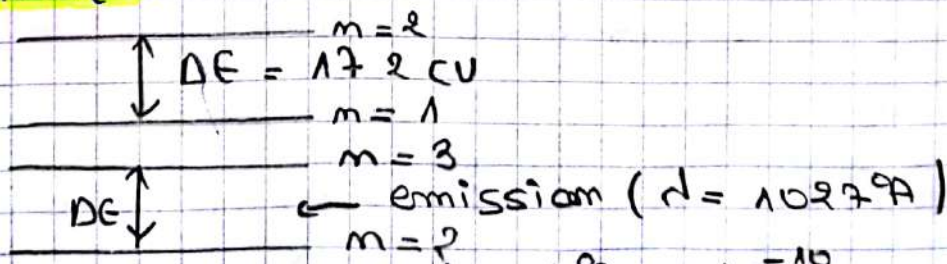 n = 2
ΔE = 17 2 eV
n = 1
n = 3
ΔE ← emission (λ = 1027 °A)
n = ?
-10